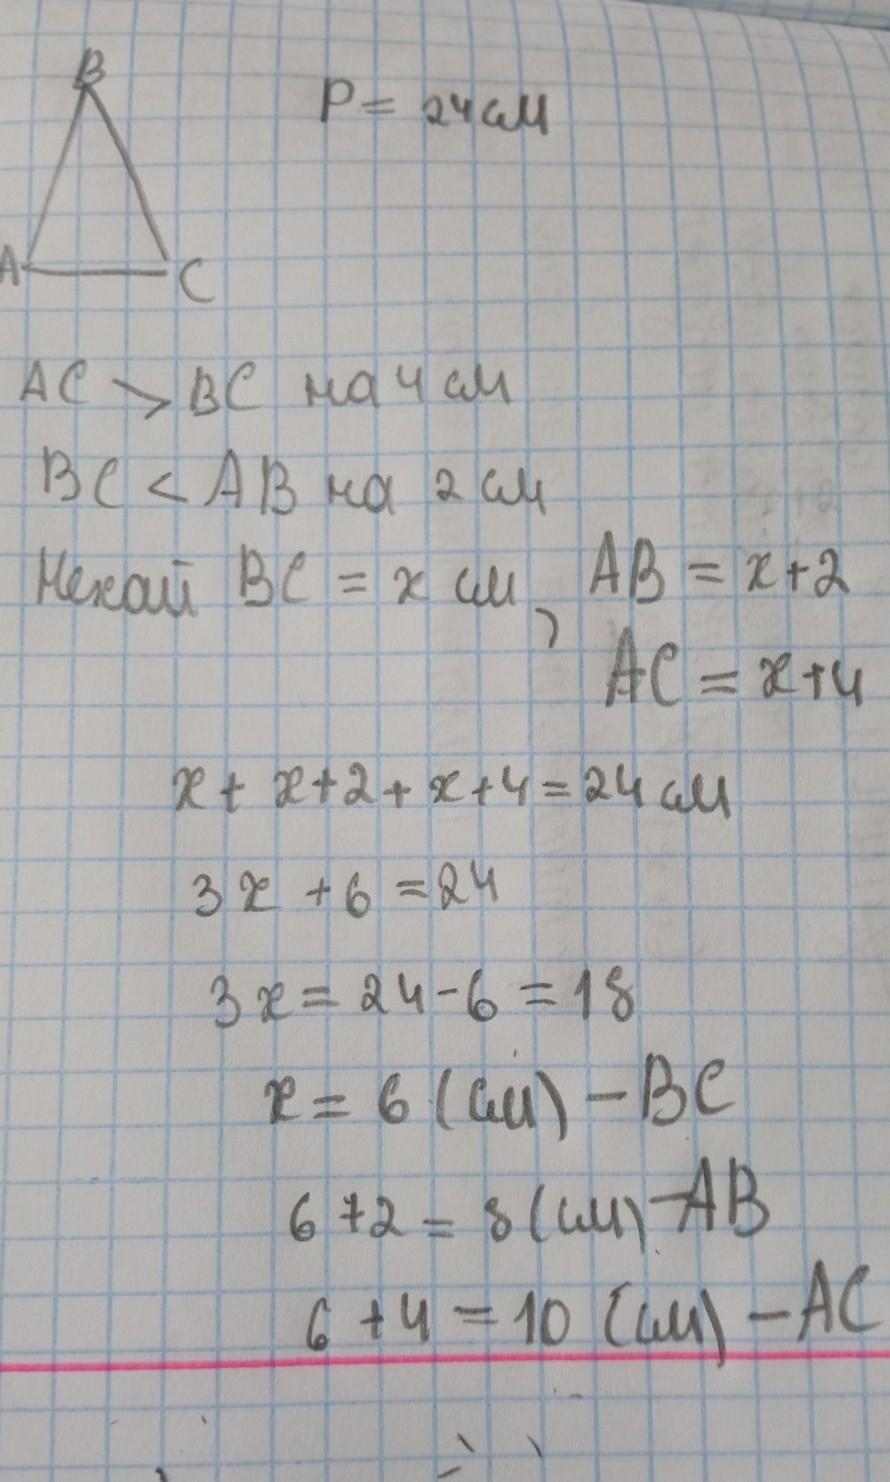 B
P = 24 см
A
C
AC > BC на 4 см
BC < AB на 2 см
Нехай BC = x см, AB = x+2
AC = x+4
x + x+2 + x+4 = 24 см
3x + 6 = 24
3x = 24 - 6 = 18
x = 6 (см) - BC
6 + 2 = 8 (см) - AB
6 + 4 = 10 (см) - AC